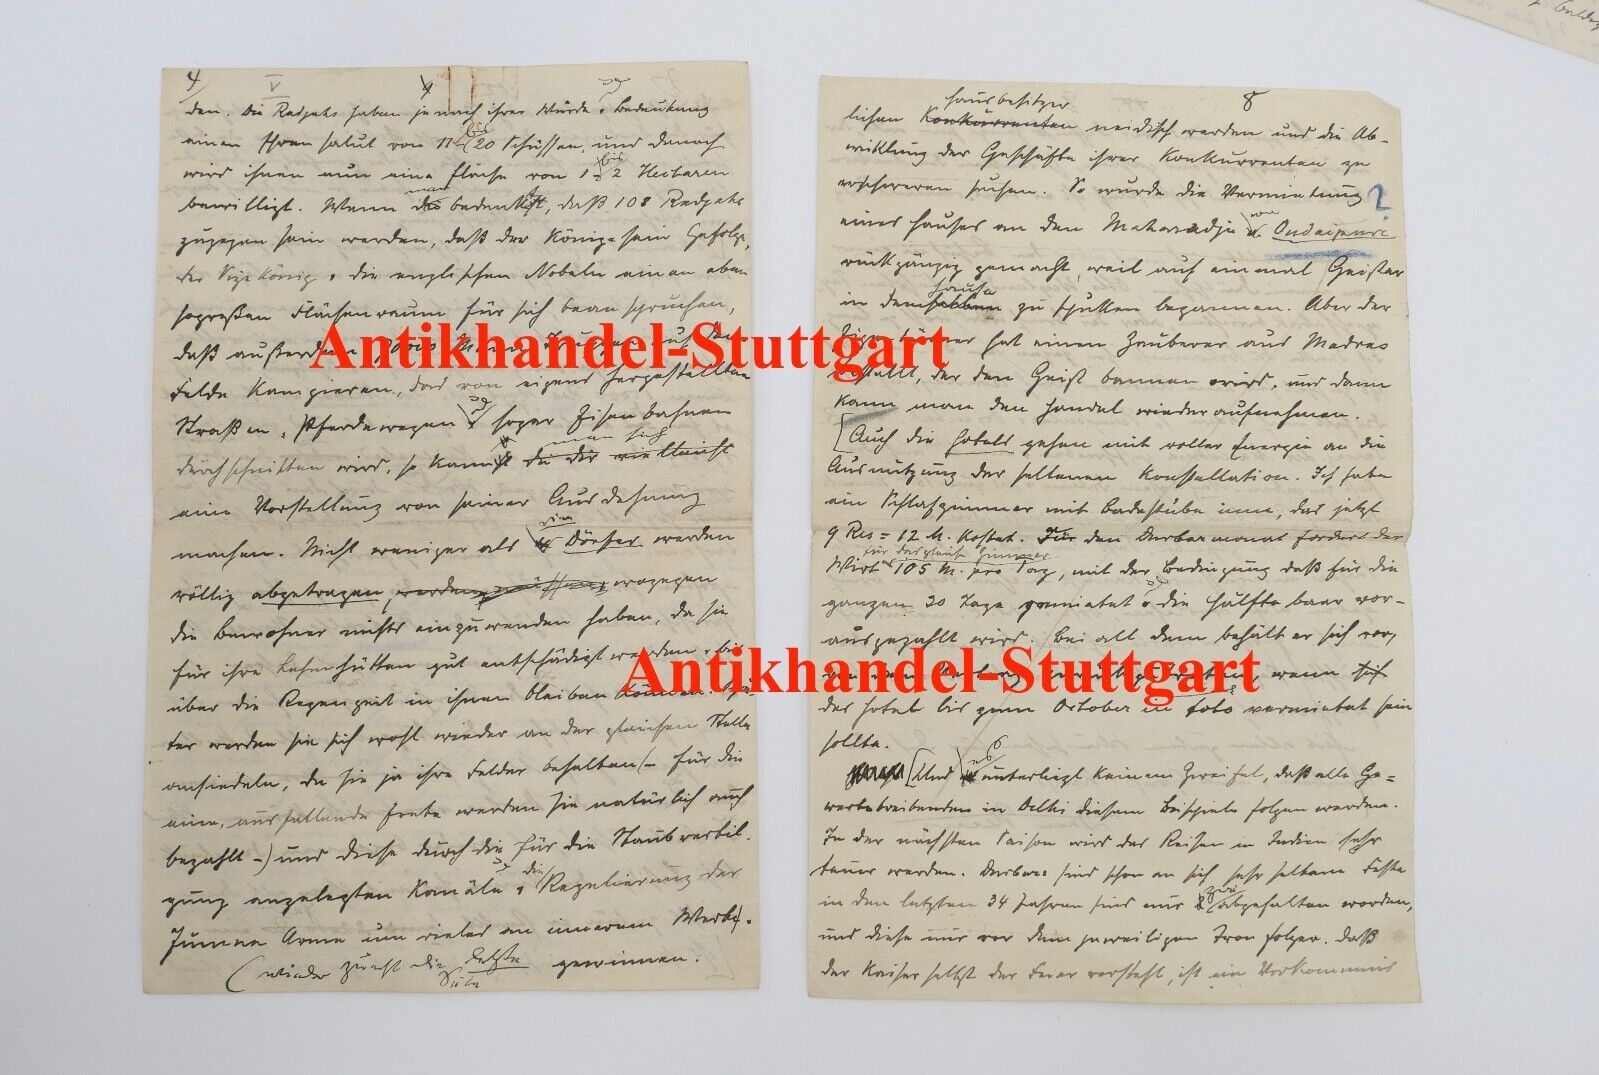 4 V 4
den. Die Radjahs haben je nach ihrer Würde u. Bedeutung
einen Ehrensalut von 11 bis 20 Schüssen, und danach
wird ihnen nun eine Fläche von 1 bis 2 Hectaren
bewilligt. Wenn man bedenkt, daß 108 Radjahs
zugegen sein werden, daß der König sein Gefolge,
der Vize König u. die englischen Nobeln einen eben
sogroßen Flächenraum für sich beanspruchen,
daß außerdem
Felde kampieren, das von eigens hergestellten
Straßen, Pferdewegen und sogar Eisenbahnen
durchschnitten wird, so kann man sich die vielleicht
eine Vorstellung von seiner Ausdehnung
machen. Nicht weniger als Dörfer werden
völlig abgetragen, werden wogegen
die Bewohner nichts einzuwenden haben, da sie
für ihre Lehmhütten gut entschädigt werden u. bis
über die Regenzeit in ihnen bleiben können. Spä-
ter werden sie sich wohl wieder an der gleichen Stelle
ansiedeln, da sie ja ihre Felder behalten (– für die
eine, ausfallende Ernte werden sie natürlich auch
bezahlt –) und diese durch die für die Staubvertil-
gung angelegten Kanäle u. die Regulierung der
Jumna Arme um vieles an innerem Wert
(wieder zurück die letzte gewinnen.
8
hausbesitzer
lichen Konkurrenten neidisch werden und die Ab-
wicklung der Geschäfte ihrer Konkurrenten zu
erschweren suchen. So wurde die Vermietung ?
eines Hauses an den Maharadja von Oudaipure
rückgängig gemacht, weil auf einmal Geister
in dem Hause zu spuken begannen. Aber der
Eigentümer hat einen Zauberer aus Madras
bestellt, der den Geist bannen wird, und dann
kann man den Handel wieder aufnehmen.
[Auch die Hotels gehen mit voller Energie an die
Ausnützung der seltenen Konstellation. Ich habe
ein Schlafzimmer mit Badestube inne, das jetzt
9 Res = 12 M. kostet. Für den Durbarmonat fordert der
Wirt für das gleiche Zimmer 105 M. pro Tag, mit der Bedingung daß für die
ganzen 30 Tage gemietet u. die Hälfte baar vor-
ausgezahlt wird. Bei all dem behält er sich vor,
von dem Vertrag zurückzutreten, wenn
das Hotel bis zum October in toto vermietet sein
sollte.
[Und es unterliegt keinem Zweifel, daß alle Ge-
werbetreibenden in Delhi diesem Beispiele folgen werden.
In der nächsten Saison wird das Reisen in Indien sehr
teuer werden. Durbars sind schon an sich sehr seltene Feste
in den letzten 34 Jahren sind nur zwei abgehalten worden,
und diese nur vor dem jeweiligen Tronfolger. Daß
der Kaiser selbst der Feier vorsteht, ist ein Vorkommnis
Antikhandel-Stuttgart
Antikhandel-Stuttgart